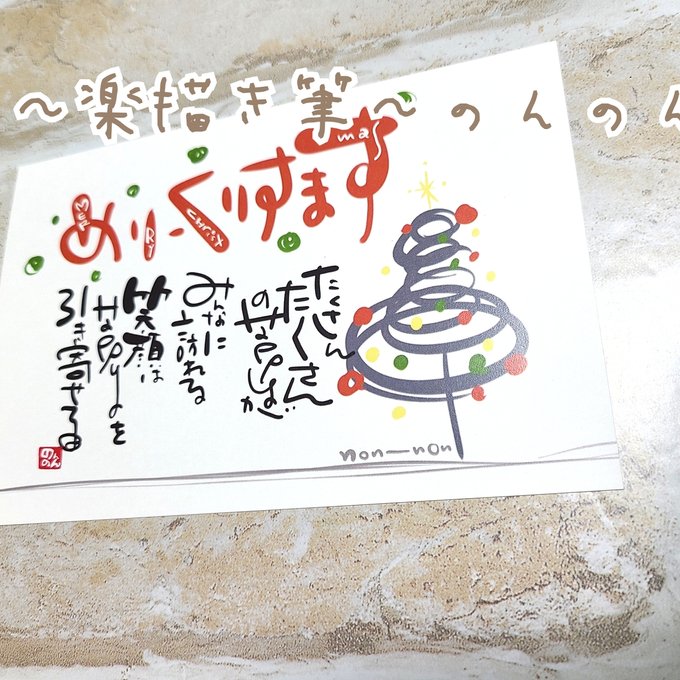 ～楽描き筆～のんのん
めりーくりすます
MER
RY
christ
mas
たくさん
たくさん
のHappyが
みんなに
訪れる
笑顔は
Happyを
引き寄せる
のんのん
non-non